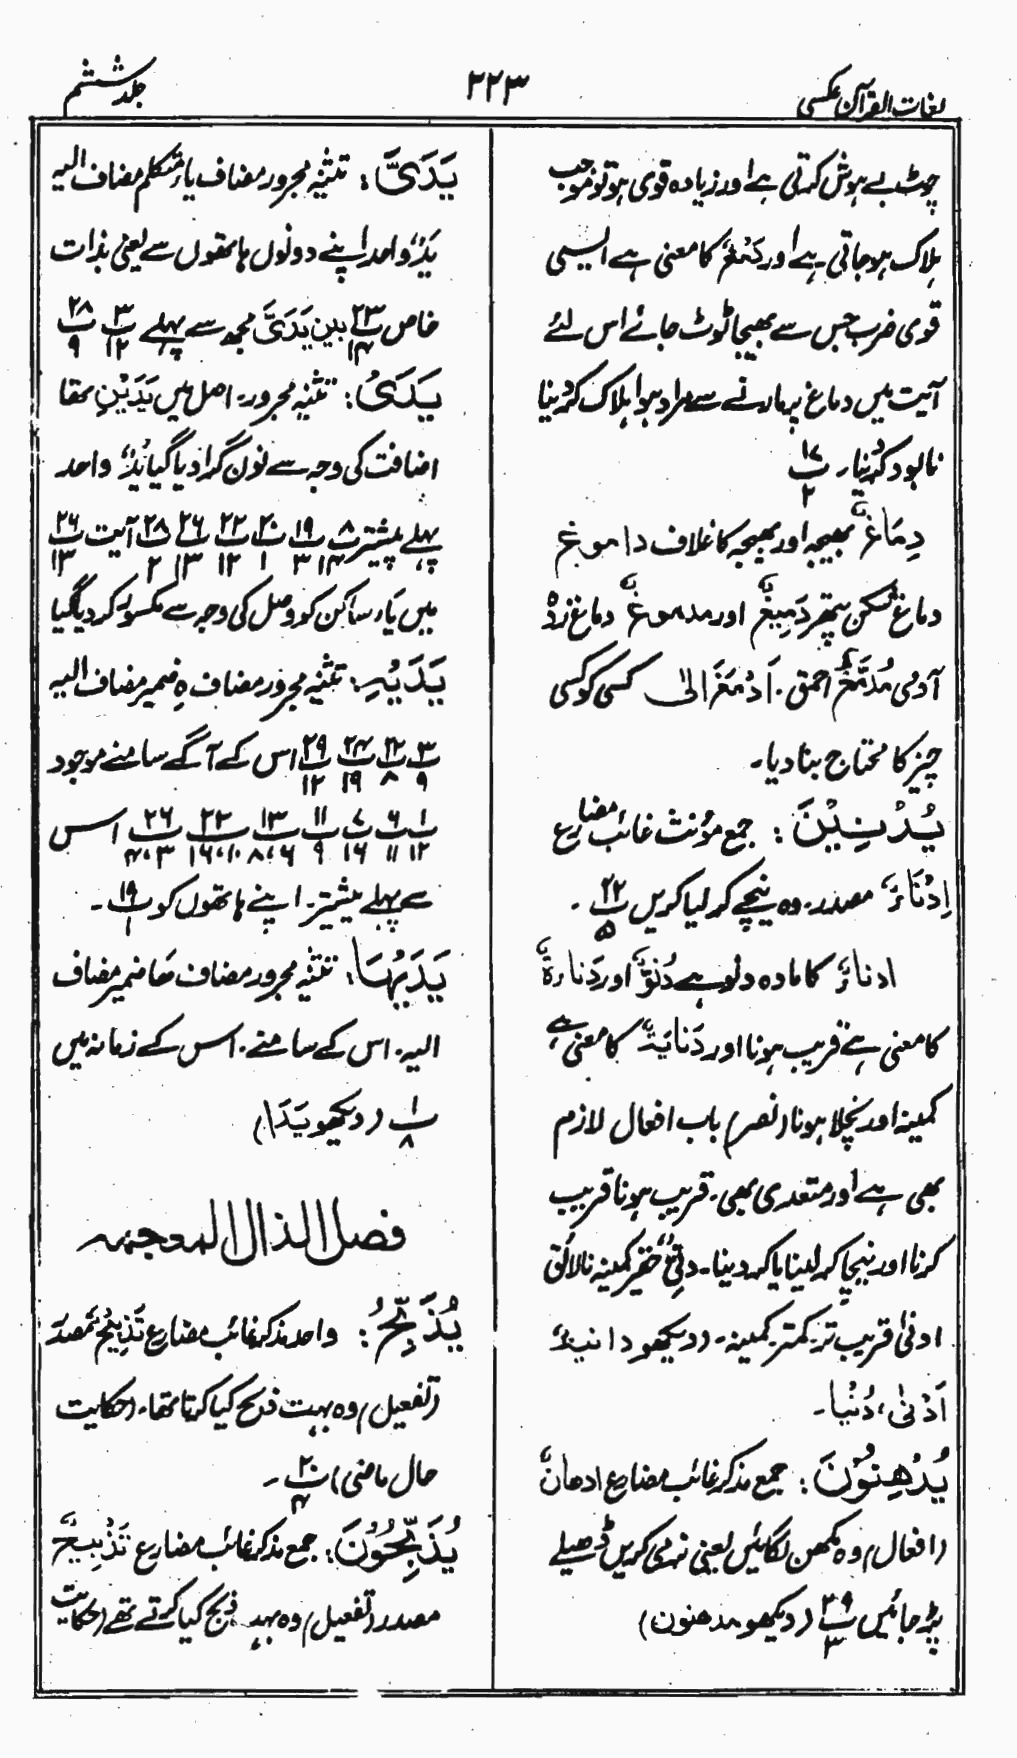 لغات القرآن عکسی
۲۲۳
جلد ششم
چوٹ بے ہوش کرتی ہے اور زیادہ قوی ہو تو موجب
ہلاک ہو جاتی ہے اور دَمْغٌ کا معنی ہے ایسی
قوی ضرب جس سے بھیجا ٹوٹ جائے اس لئے
آیت میں دماغ پر مارنے سے مراد ہوا ہلاک کر دینا
نابود کر دینا۔ پ۱۷ ۲
دِمَاغٌ بھیجہ اور بھیجہ کا غلاف داموغ
دماغ شکن پتھر دَمِیغٌ اور مدموغٌ دماغ زدہ
آدمی مُدَمَّغٌ احمق۔ اَدْمَغَ الیٰ کسی کو کسی
چیز کا محتاج بنا دیا۔
یُدْنِیْنَ: جمع مؤنث غائب مضارع
اِدْنَاءٌ مصدر۔ وہ نیچے کر لیا کریں پ۲۲ ۵۔
ادناءٌ کا مادہ دلو ہے دُنُوٌّ اور دَناوۃٌ
کا معنی ہے قریب ہونا اور دَنَایَۃٌ کا معنی ہے
کمینہ اور نچلا ہونا (نصر) باب افعال لازم
بھی ہے اور متعدی بھی۔ قریب ہونا قریب
کرنا اور نیچا کر لینا یا کر دینا۔ دنیٌّ حقیر کمینہ نالائق
ادنیٰ قریب تر۔ کمتر۔ کمینہ۔ (دیکھو دانیۃ
اَدْنیٰ، دُنْیا۔
یُدْهِنُوْنَ: جمع مذکر غائب مضارع ادهانٌ
(افعال) وہ مکھن لگائیں یعنی نرمی کریں ڈھیلے
پڑ جائیں پ۲۹ ۳ (دیکھو مدهنون)
یَدَیَّ: تثنیہ مجرور مضاف یاء متکلم مضاف الیہ
یَدٌ واحد اپنے دونوں ہاتھوں سے یعنی بذات
خاص پ۲۳ ۱۴ بین یَدَیَّ مجھ سے پہلے پ۳ ۱۲ پ۲۸ ۹
یَدَیْ: تثنیہ مجرور۔ اصل میں یَدَیْنِ تھا
اضافت کی وجہ سے نون گرا دیا گیا یَدٌ واحد
پہلے پیشتر پ۸ ۱۴ پ۱۹ ۳ پ۲۰ ۱ پ۲۲ ۱۲ پ۲۶ ۱۳ پ۲۸ ۲ آیت پ۲۶ ۱۳
میں یاء ساکن کو وصل کی وجہ سے مکسور کر دیا گیا
یَدَیْہِ: تثنیہ مجرور مضاف ہِ ضمیر مضاف الیہ
پ۳ ۹ پ۲۲ ۸ پ۲۴ ۱۹ پ۲۹ ۱۲ اس کے آگے سامنے موجود
پ۱ ۱۲ پ۶ ۱۱ پ۷ ۱۷ پ۱۱ ۹ پ۱۳ ۶،۸ پ۲۲ ۱۰،۱۶ پ۲۶ ۳،۴ اس
سے پہلے پیشتر۔ اپنے ہاتھوں کو پ۱۹ ۱۔
یَدَیْہَا: تثنیہ مجرور مضاف ھَا ضمیر مضاف
الیہ۔ اس کے سامنے۔ اس کے زمانہ میں
پ۱ ۸ (دیکھو یَدَا)
فصل الذال المعجمۃ
یُذَبِّحُ: واحد مذکر غائب مضارع تَذْبِیْحٌ مصدر
(تفعیل) وہ بہت ذبح کیا کرتا تھا۔ (حکایت
حال ماضی) پ۲۰ ۴۔
یُذَبِّحُوْنَ: جمع مذکر غائب مضارع تَذْبِیحٌ
مصدر (تفعیل) وہ بہت ذبح کیا کرتے تھے (حکایت